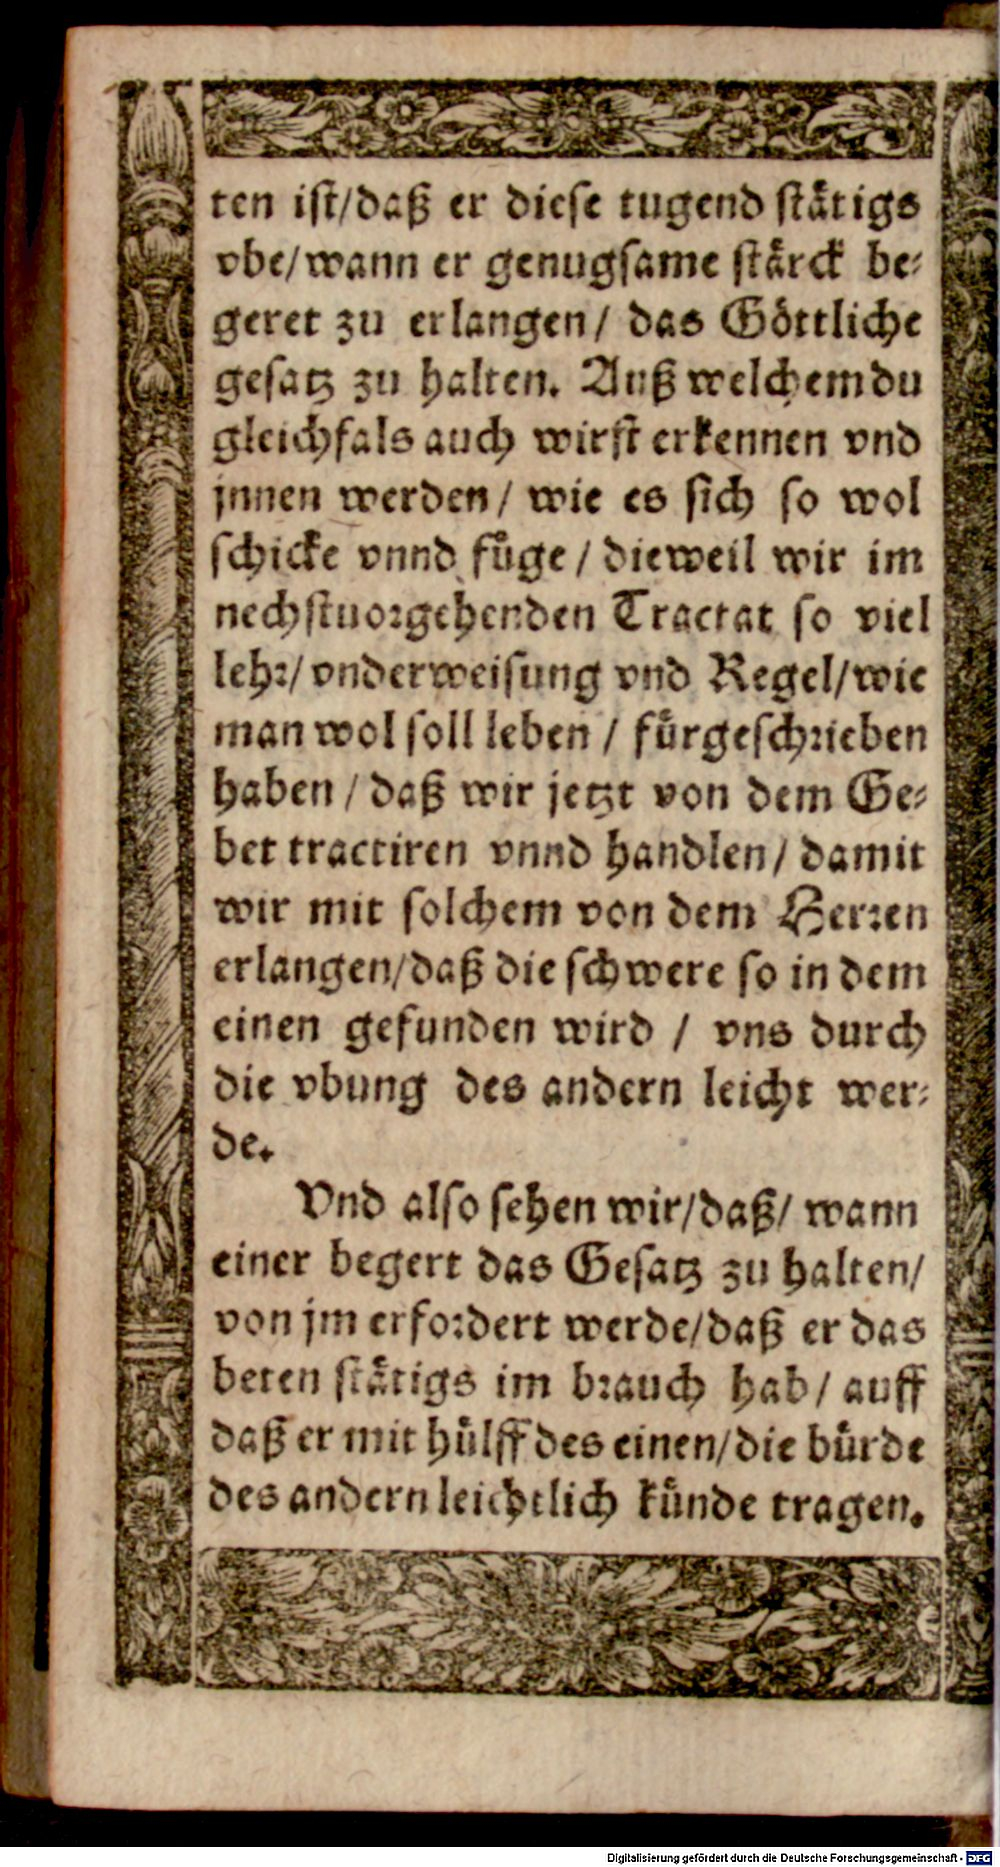 ten ist/daß er diese tugend stätigs
vbe/wann er genugsame stärck be-
geret zu erlangen/ das Göttliche
gesatz zu halten. Auß welchem du
gleichfals auch wirst erkennen vnd
jnnen werden/ wie es sich so wol
schicke vnnd füge/ dieweil wir im
nechstuorgehenden Tractat so viel
lehr/ vnderweisung vnd Regel/wie
man wol soll leben/ fürgeschrieben
haben/ daß wir jetzt von dem Ge-
bet tractiren vnnd handlen/ damit
wir mit solchem von dem Herren
erlangen/daß die schwere so in dem
einen gefunden wird/ vns durch
die vbung des andern leicht wer-
de.
Vnd also sehen wir/daß/ wann
einer begert das Gesatz zu halten/
von jm erfordert werde/daß er das
beten stätigs im brauch hab/ auff
daß er mit hülff des einen/die bürde
des andern leichtlich künde tragen.
Digitalisierung gefördert durch die Deutsche Forschungsgemeinschaft - DFG